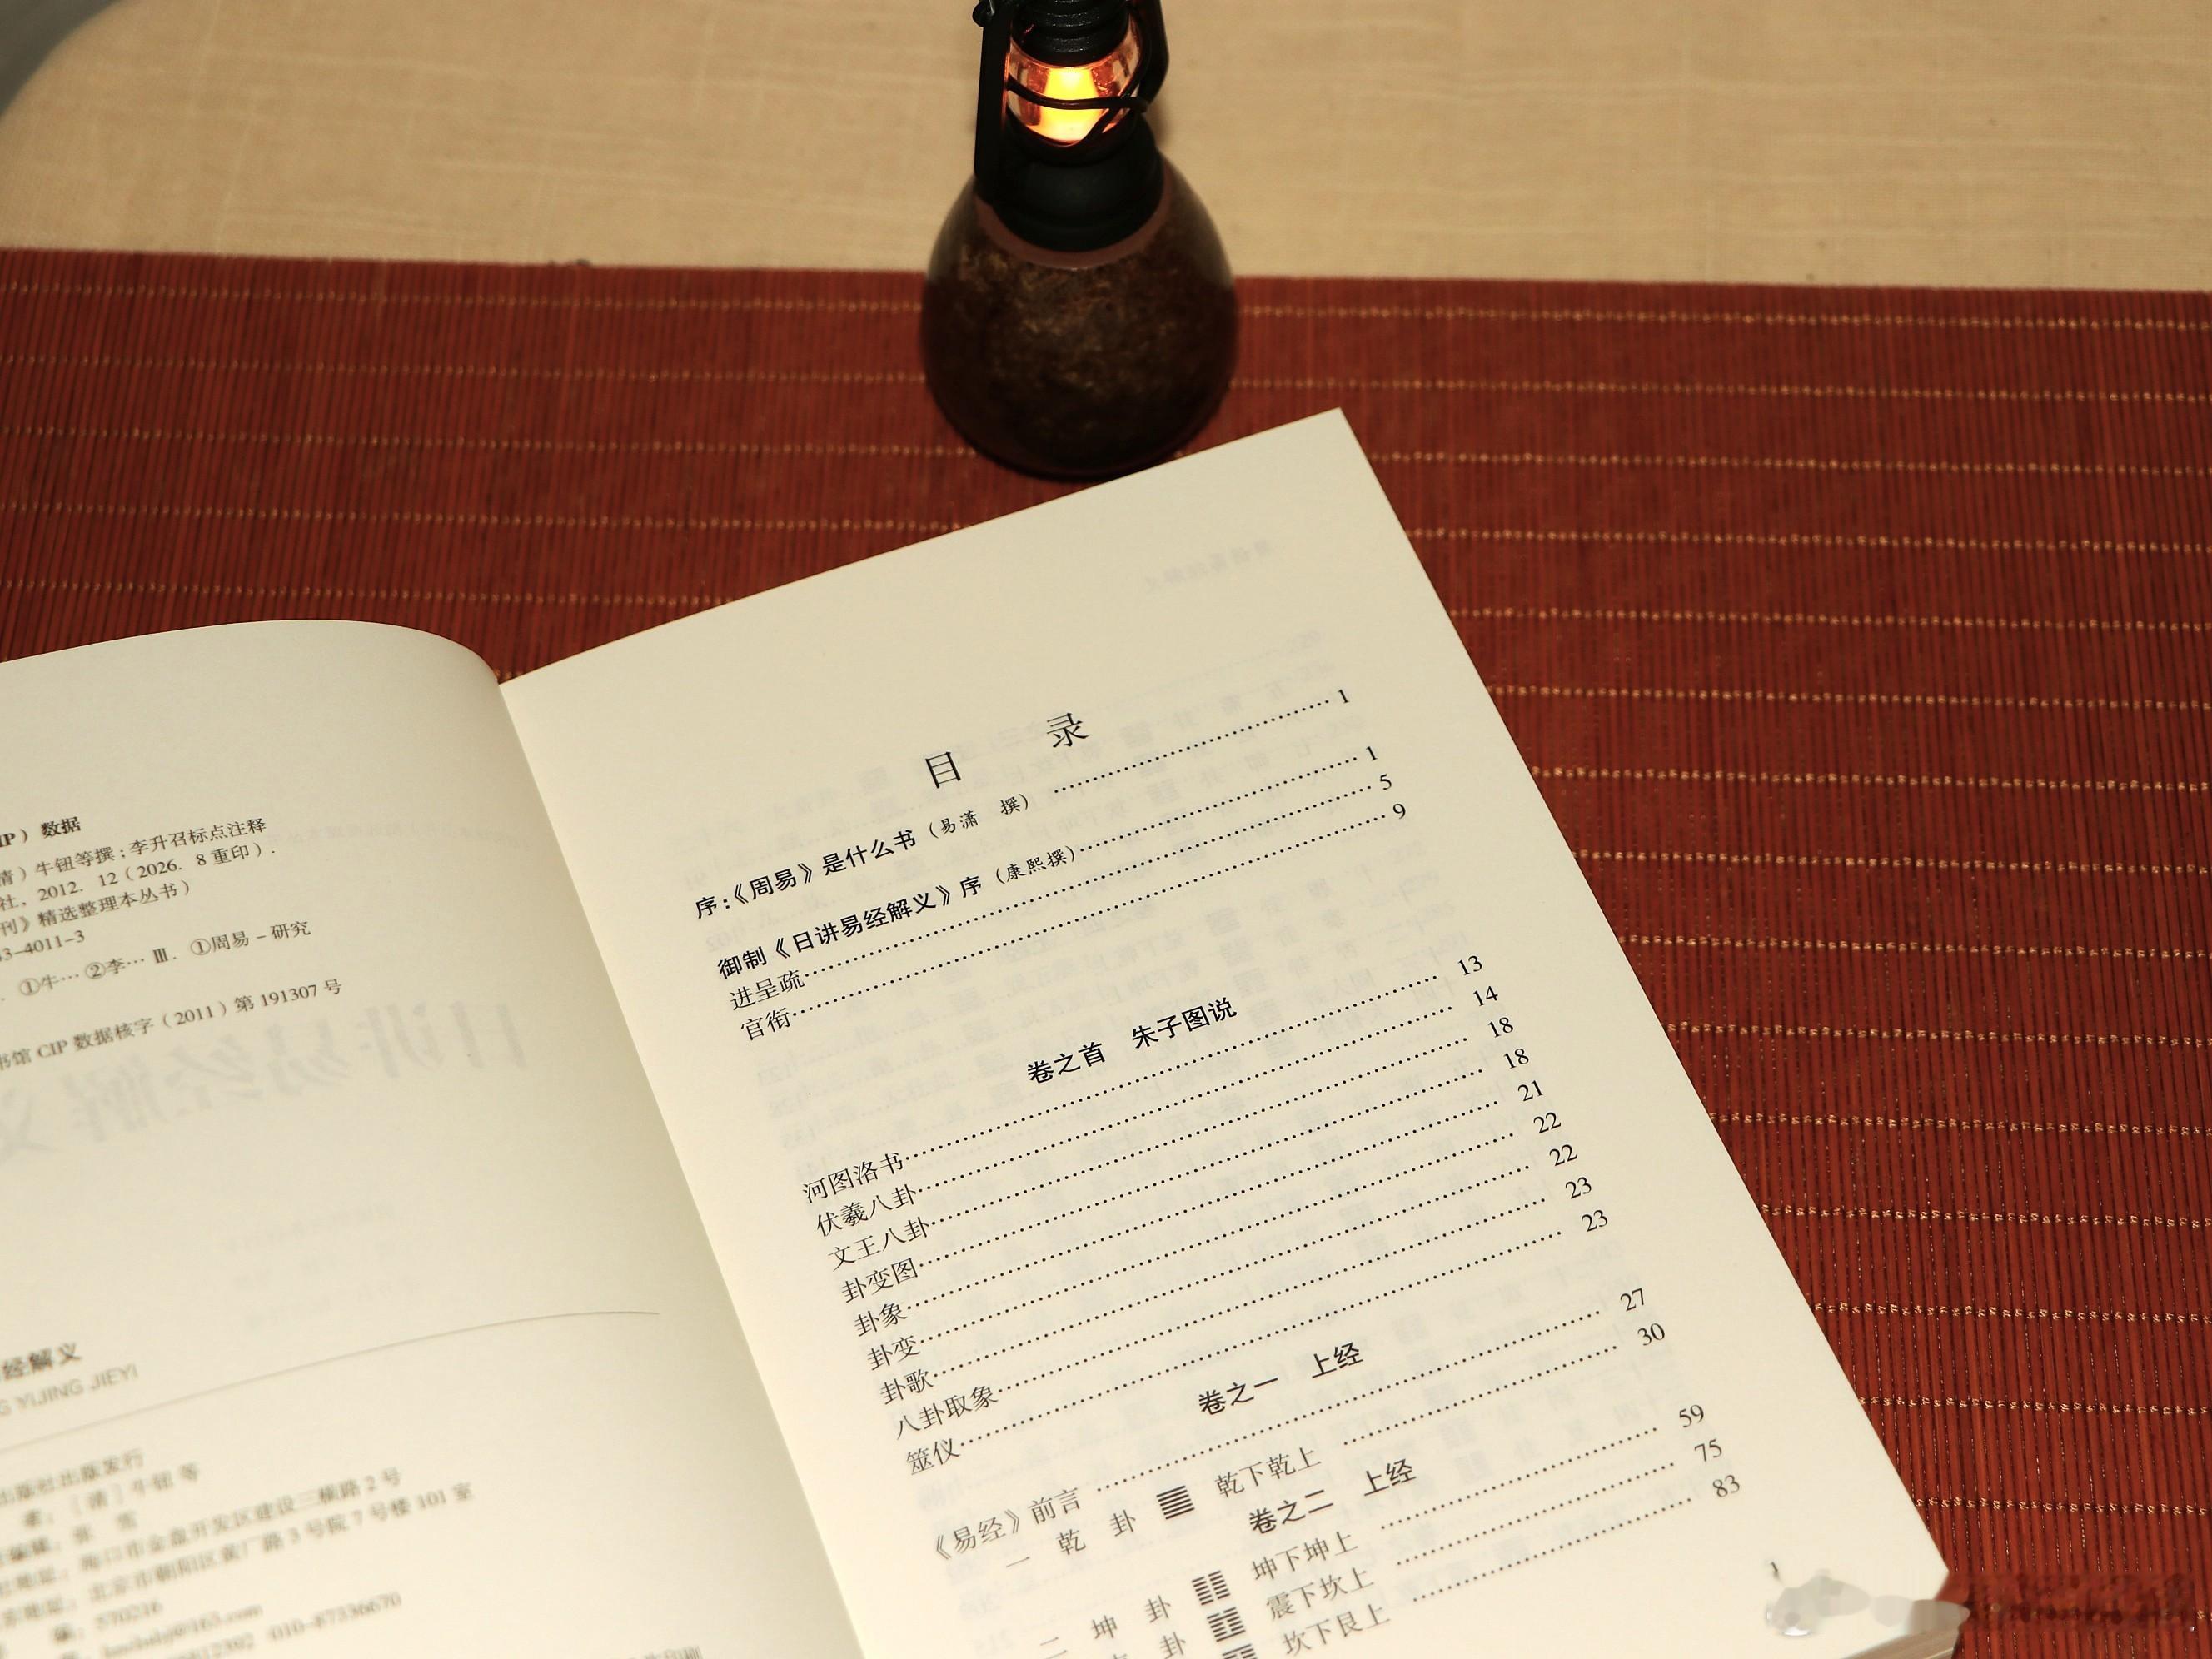 IP）数据
清）牛钮等撰；李升召标点注释
社，2012．12（2026．8重印）．
刊》精选整理本丛书）
43-4011-3
①牛… ②李… Ⅲ．①周易－研究
书馆 CIP 数据核字（2011）第 191307 号
经解义
G YIJING JIEYI
出版社出版发行
［清］牛钮 等
海口市金盘开发区建设三横路2号
北京市朝阳区黄厂路3号院7号楼101室
570216
010-87336670
目 录
序：《周易》是什么书（易潇 撰） 1
御制《日讲易经解义》序（康熙撰） 1
进呈疏 5
官衔 9
卷之首 朱子图说
河图洛书 13
伏羲八卦 14
文王八卦 18
卦变图 18
卦象 21
卦变 22
卦歌 22
八卦取象 23
筮仪 23
卷之一 上经
《易经》前言 27
一 乾 卦 ䷀ 乾下乾上 30
卷之二 上经
二 坤 卦 ䷁ 坤下坤上 59
卦 ䷂ 震下坎上 75
坎下艮上 83
1